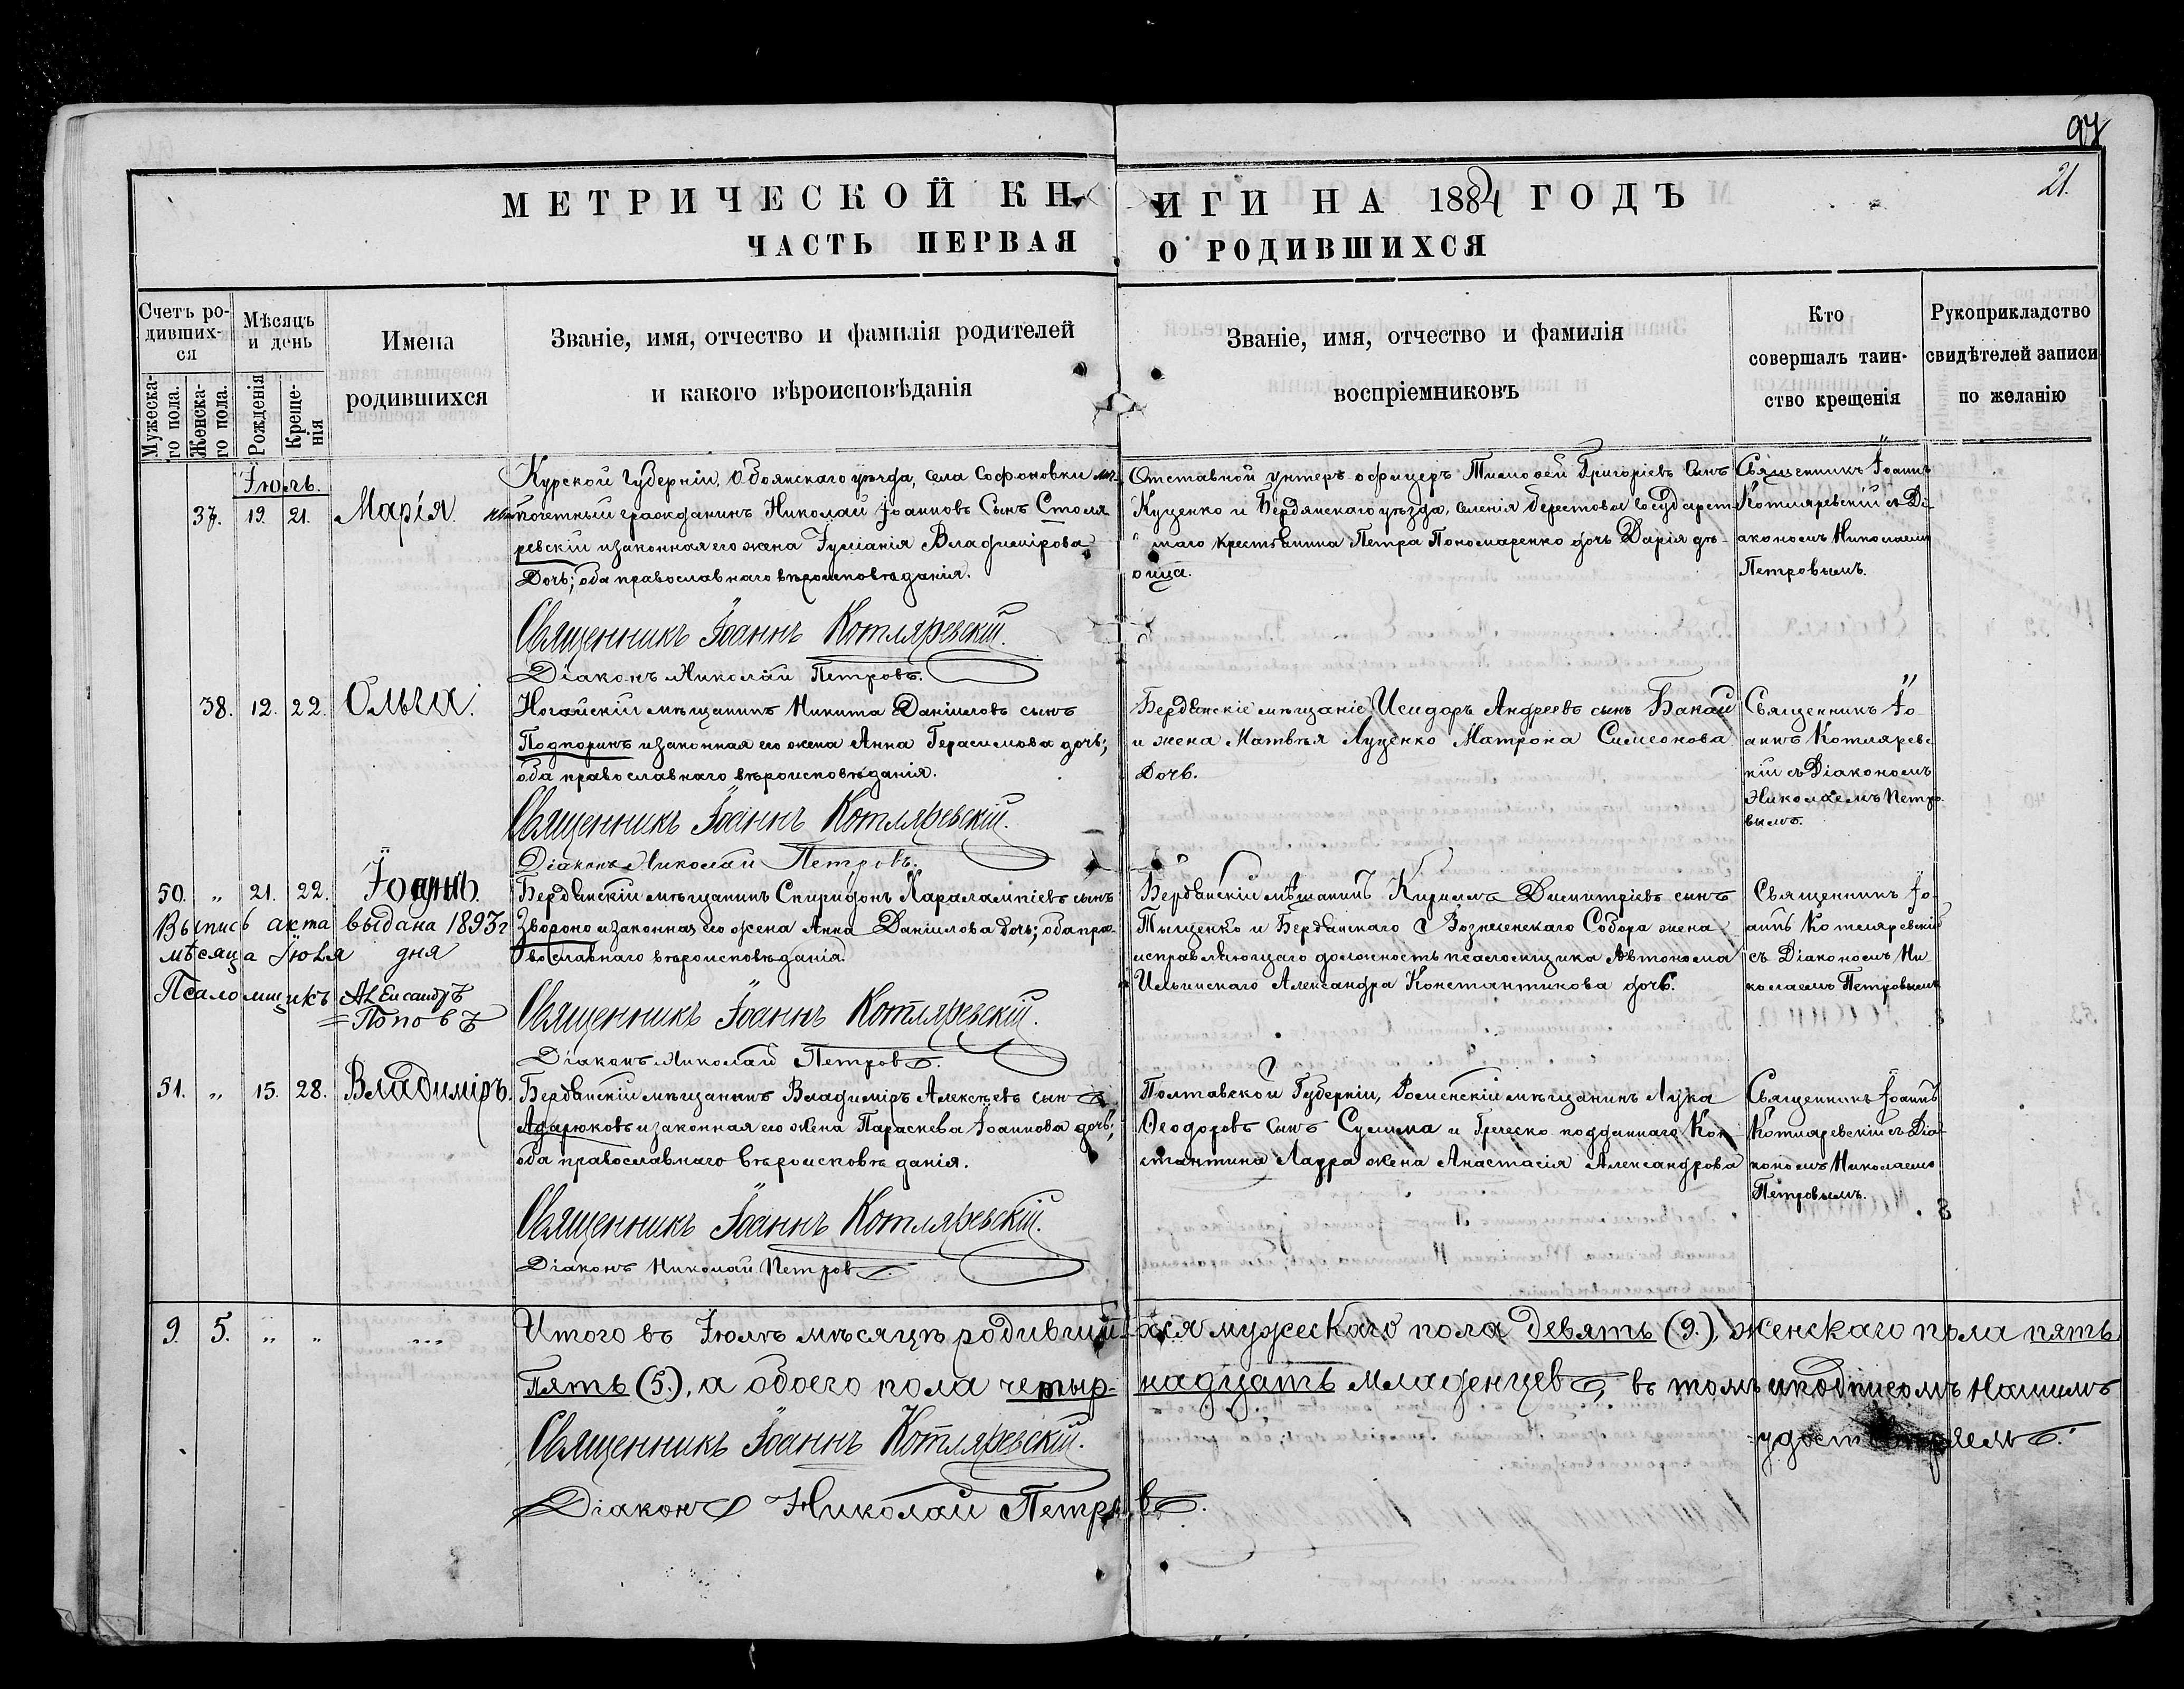 97
21.
МЕТРИЧЕСКОЙ КНИГИ НА 1884 ГОДЪ
ЧАСТЬ ПЕРВАЯ О РОДИВШИХСЯ
Счетъ ро-
дивших-
ся
Мужеска-
го пола.
Женска-
го пола.
Мѣсяцъ
и день
Рожденія
Креще-
нія
Имена
родившихся
Званіе, имя, отчество и фамилія родителей
и какого вѣроисповѣданія
Званіе, имя, отчество и фамилія
воспріемниковъ
Кто
совершалъ таин-
ство крещенія
Рукоприкладство
свидѣтелей записи
по желанію
Іюль.
37. 19. 21. Марія.
Курской Губерніи, Обоянскаго уѣзда, села Софоновки
почетный гражданинъ Николай Іоанновъ Сынъ Столя
ревскій и законная его жена Іуліанія Владимірова
Дочь; оба православнаго вѣроисповѣданія.
Священникъ Іоаннъ Котляревскій.
Діаконъ Николай Петровъ.
Отставной унтеръ офицеръ Тимофей Григоріевъ Сынъ
Куценко и Бердянскаго уѣзда, селенія Берестова Государст
" крестьянина Петра Пономаренко дочь Дарія дѣ-
вица.
Священникъ Іоаннъ
Котляревскій съ Ді-
акономъ Николаемъ
Петровымъ.
38. 12. 22. Ольга.
Ногайскій мѣщанинъ Никита Даніиловъ сынъ
Подпоринъ и законная его жена Анна Герасимова дочь;
оба православнаго вѣроисповѣданія.
Священникъ Іоаннъ Котляревскій.
Діаконъ Николай Петровъ.
Бердянскіе мѣщаніе Исидоръ Андреевъ сынъ Бакай
и жена Матвѣя Луценко Матрона Симеонова
Дочь.
Священникъ Іо-
аннъ Котляревс
кій съ Діакономъ
Николаемъ Петро-
вымъ.
50. " 21. 22. Іоаннъ.
Выпись акта выдана 1893г
мѣсяца Іюля дня
Псаломщикъ Александръ
Поповъ
Бердянскій мѣщанинъ Спиридонъ Харалампіевъ сынъ
Звороно и законная его жена Анна Даніилова дочь; оба пра-
вославнаго вѣроисповѣданія.
Священникъ Іоаннъ Котляревскій.
Діаконъ Николай Петровъ.
Бердянскій мѣщанинъ Кириллъ Димитріевъ сынъ
Тыщенко и Бердянскаго Вознесенскаго Собора жена
исправляющаго должность псаломщика Автонома
Ильинскаго Александра Константинова дочь.
Священникъ Іо-
аннъ Котляревскій
съ Діакономъ Ни
колаемъ Петровымъ
51. " 15. 28. Владиміръ.
Бердянскій мѣщанинъ Владиміръ Алексѣевъ сынъ
Адарюковъ и законная его жена Параскева Іоаннова дочь;
оба православнаго вѣроисповѣданія.
Священникъ Іоаннъ Котляревскій.
Діаконъ Николай Петровъ.
Полтавской Губерніи, Роменскій мѣщанинъ Лука
Ѳеодоровъ Сынъ Сулима и Греческо подданнаго Кон
стантина Лаура жена Анастасія Александрова
Священникъ Іоаннъ
Котляревскій съ Діа
кономъ Николаемъ
Петровымъ.
9. 5. " " ...
Итого въ Іюлѣ мѣсяцѣ родившихся мужескаго пола девять (9.), женскаго пола пять
Пять (5.), а обоего пола четыр-надцать младенцевъ, въ томъ и подписомъ нашимъ
удостовѣряемъ.
Священникъ Іоаннъ Котляревскій.
Діаконъ Николай Петровъ.